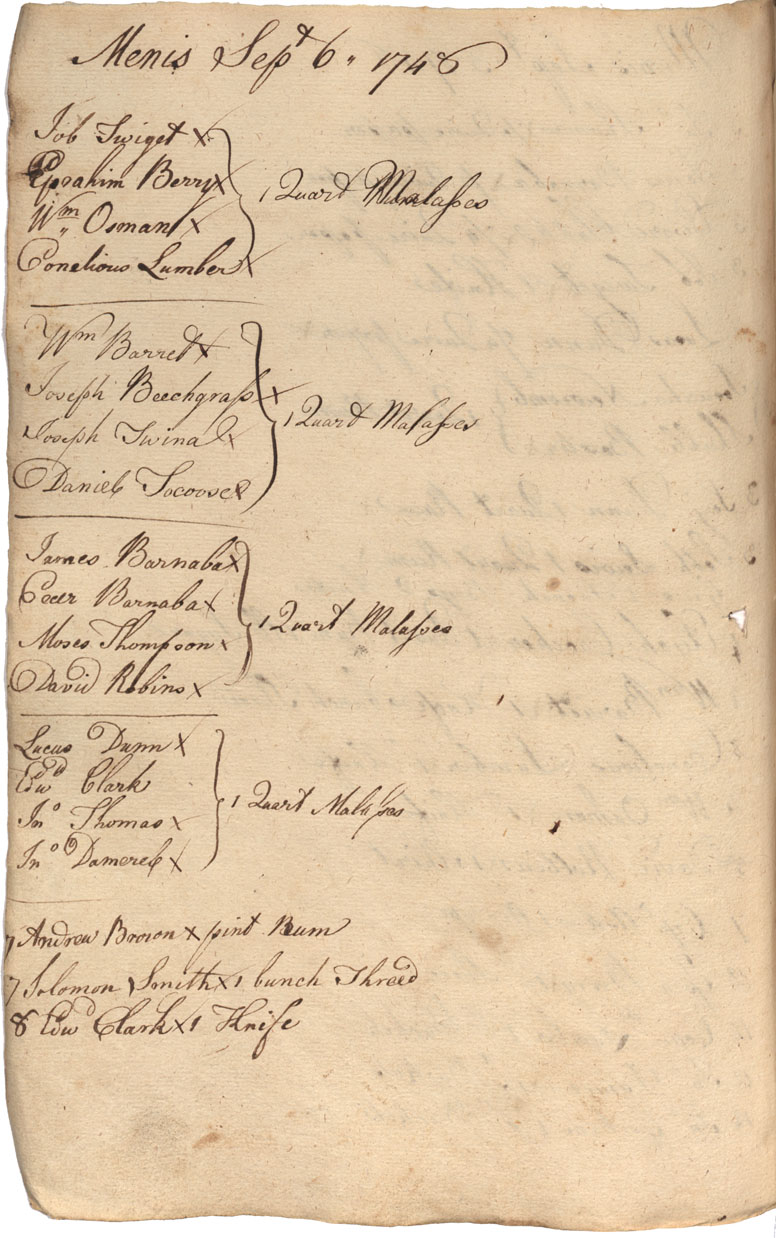 Menis Sept 6 " 1748
Job Swiget x
Eprahim Berry x
Wm " Osman x
Conelious Lumber x
1 Quart Malasses
Wm Barret x
Joseph Beechgrass x
Joseph Twina x
Daniel Tocoose x
1 Quart Malasses
James Barnaba x
Peeer Barnaba x
Moses Thompson x
David Robins x
1 Quart Malasses
Lucus Dunn x
Edwd Clark
Jno Thomas x
Jno Damerel x
1 Quart Malasses
7 Andrew Brown x pint Rum
7 Solomon Smith x 1 bunch Threed
8 Edwd Clark x 1 Knife